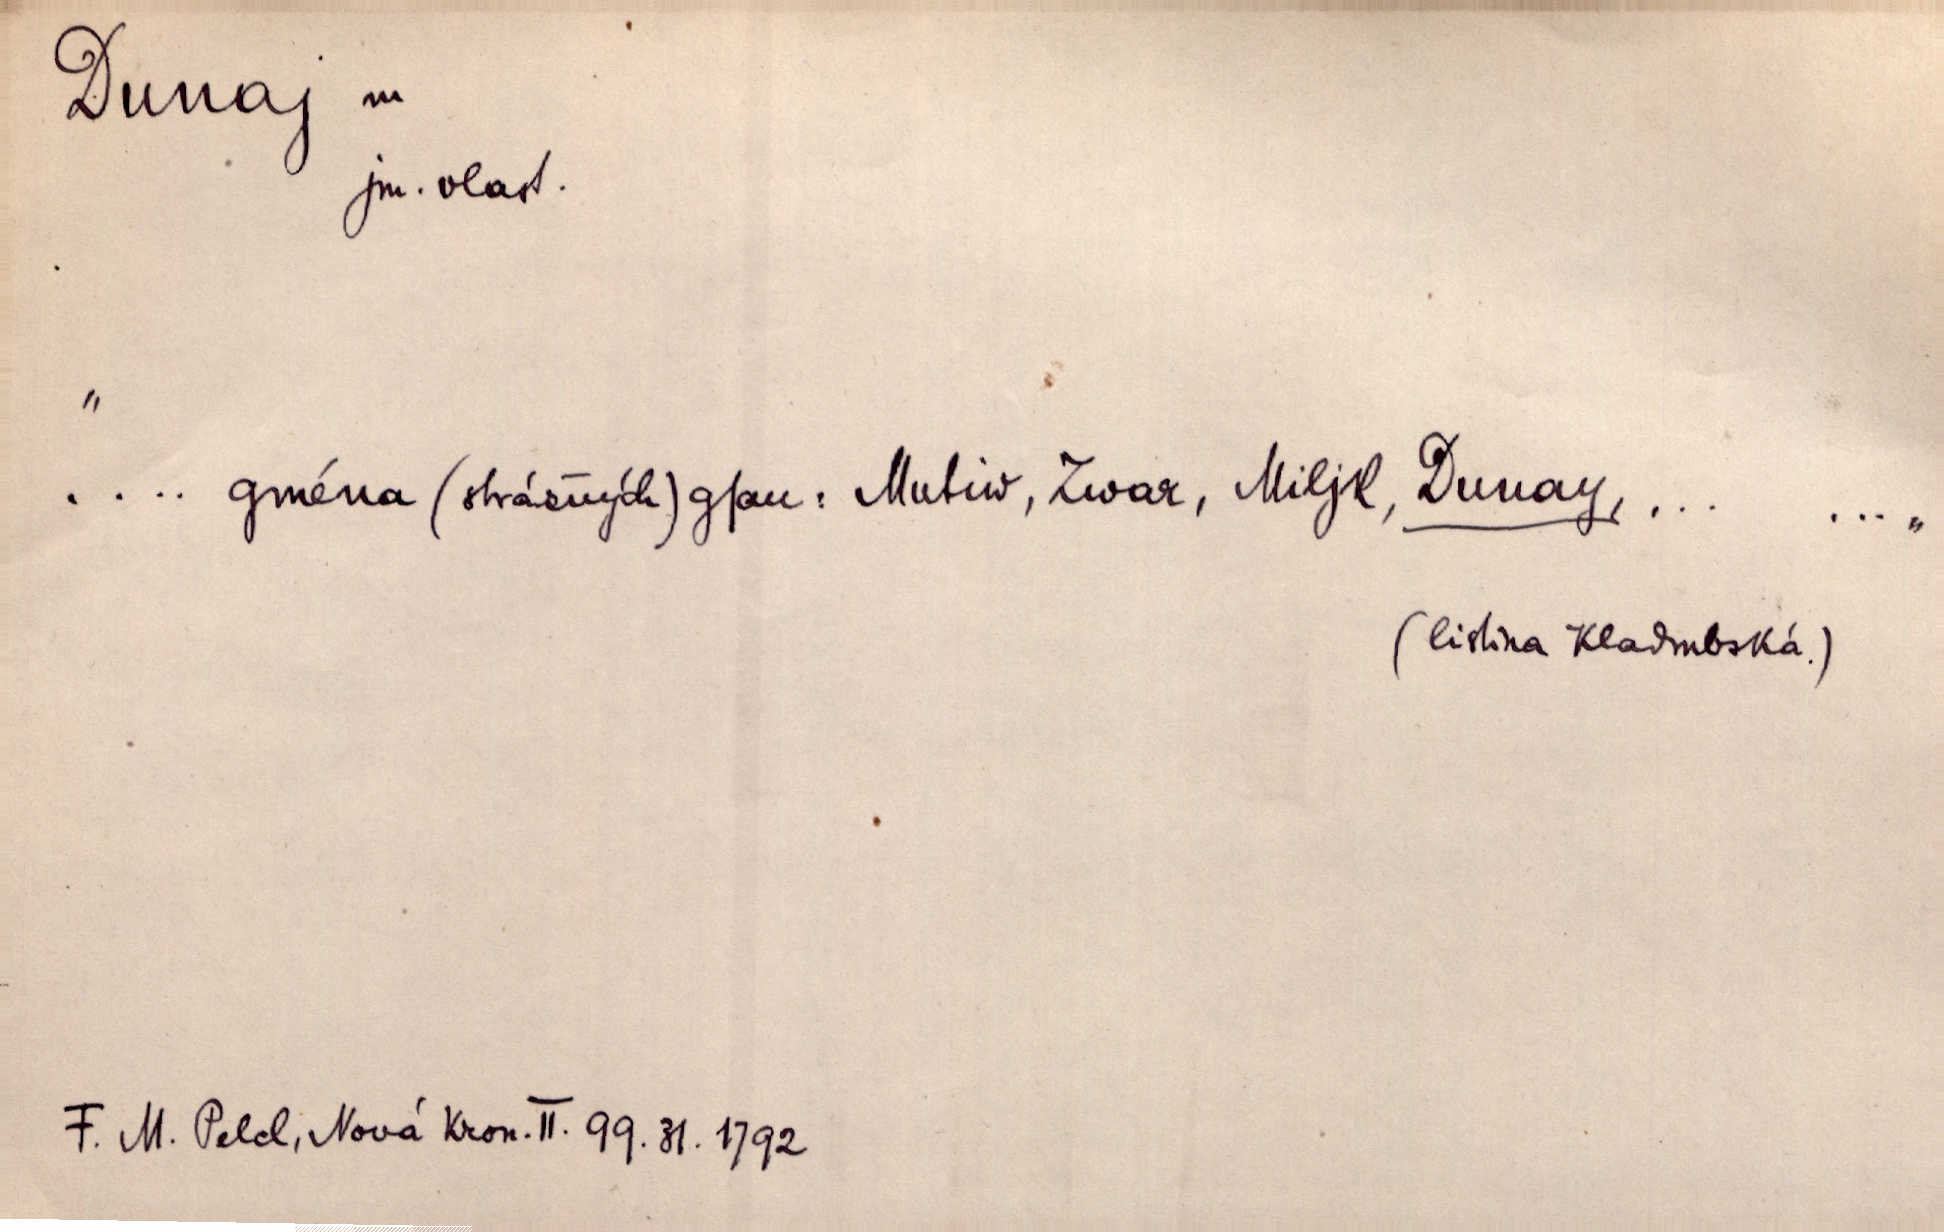 Dunaj m
jm. vlast.
"
. . . . gména (strážných) gſau: Mutiw, Zwar, Miljk, Dunay, . . . . . . "
(listina Kladrubská.)
F. M. Pelcl, Nová Kron. II. 99. 31. 1792